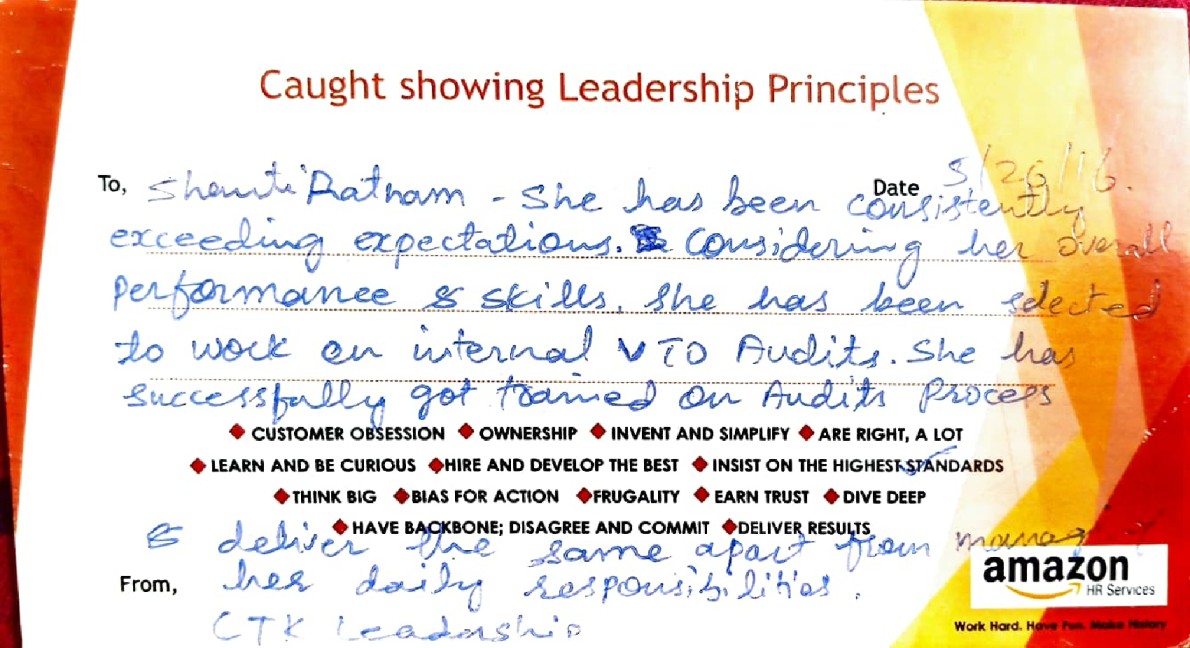 Caught showing Leadership Principles
To, Shanti Ratnam - She has been consistently Date 5/26/16.
exceeding expectations. Considering her overall
performance & skills, she has been selected
to work on internal VTO Audits. She has
successfully got trained on Audits Process
◆ CUSTOMER OBSESSION ◆ OWNERSHIP ◆ INVENT AND SIMPLIFY ◆ ARE RIGHT, A LOT
◆ LEARN AND BE CURIOUS ◆ HIRE AND DEVELOP THE BEST ◆ INSIST ON THE HIGHEST STANDARDS
◆ THINK BIG ◆ BIAS FOR ACTION ◆ FRUGALITY ◆ EARN TRUST ◆ DIVE DEEP
◆ HAVE BACKBONE; DISAGREE AND COMMIT ◆ DELIVER RESULTS
& deliver the same apart from
From, her daily responsibilities.
CTK Leadership
amazon
HR Services
Work Hard. Have Fun. Make History